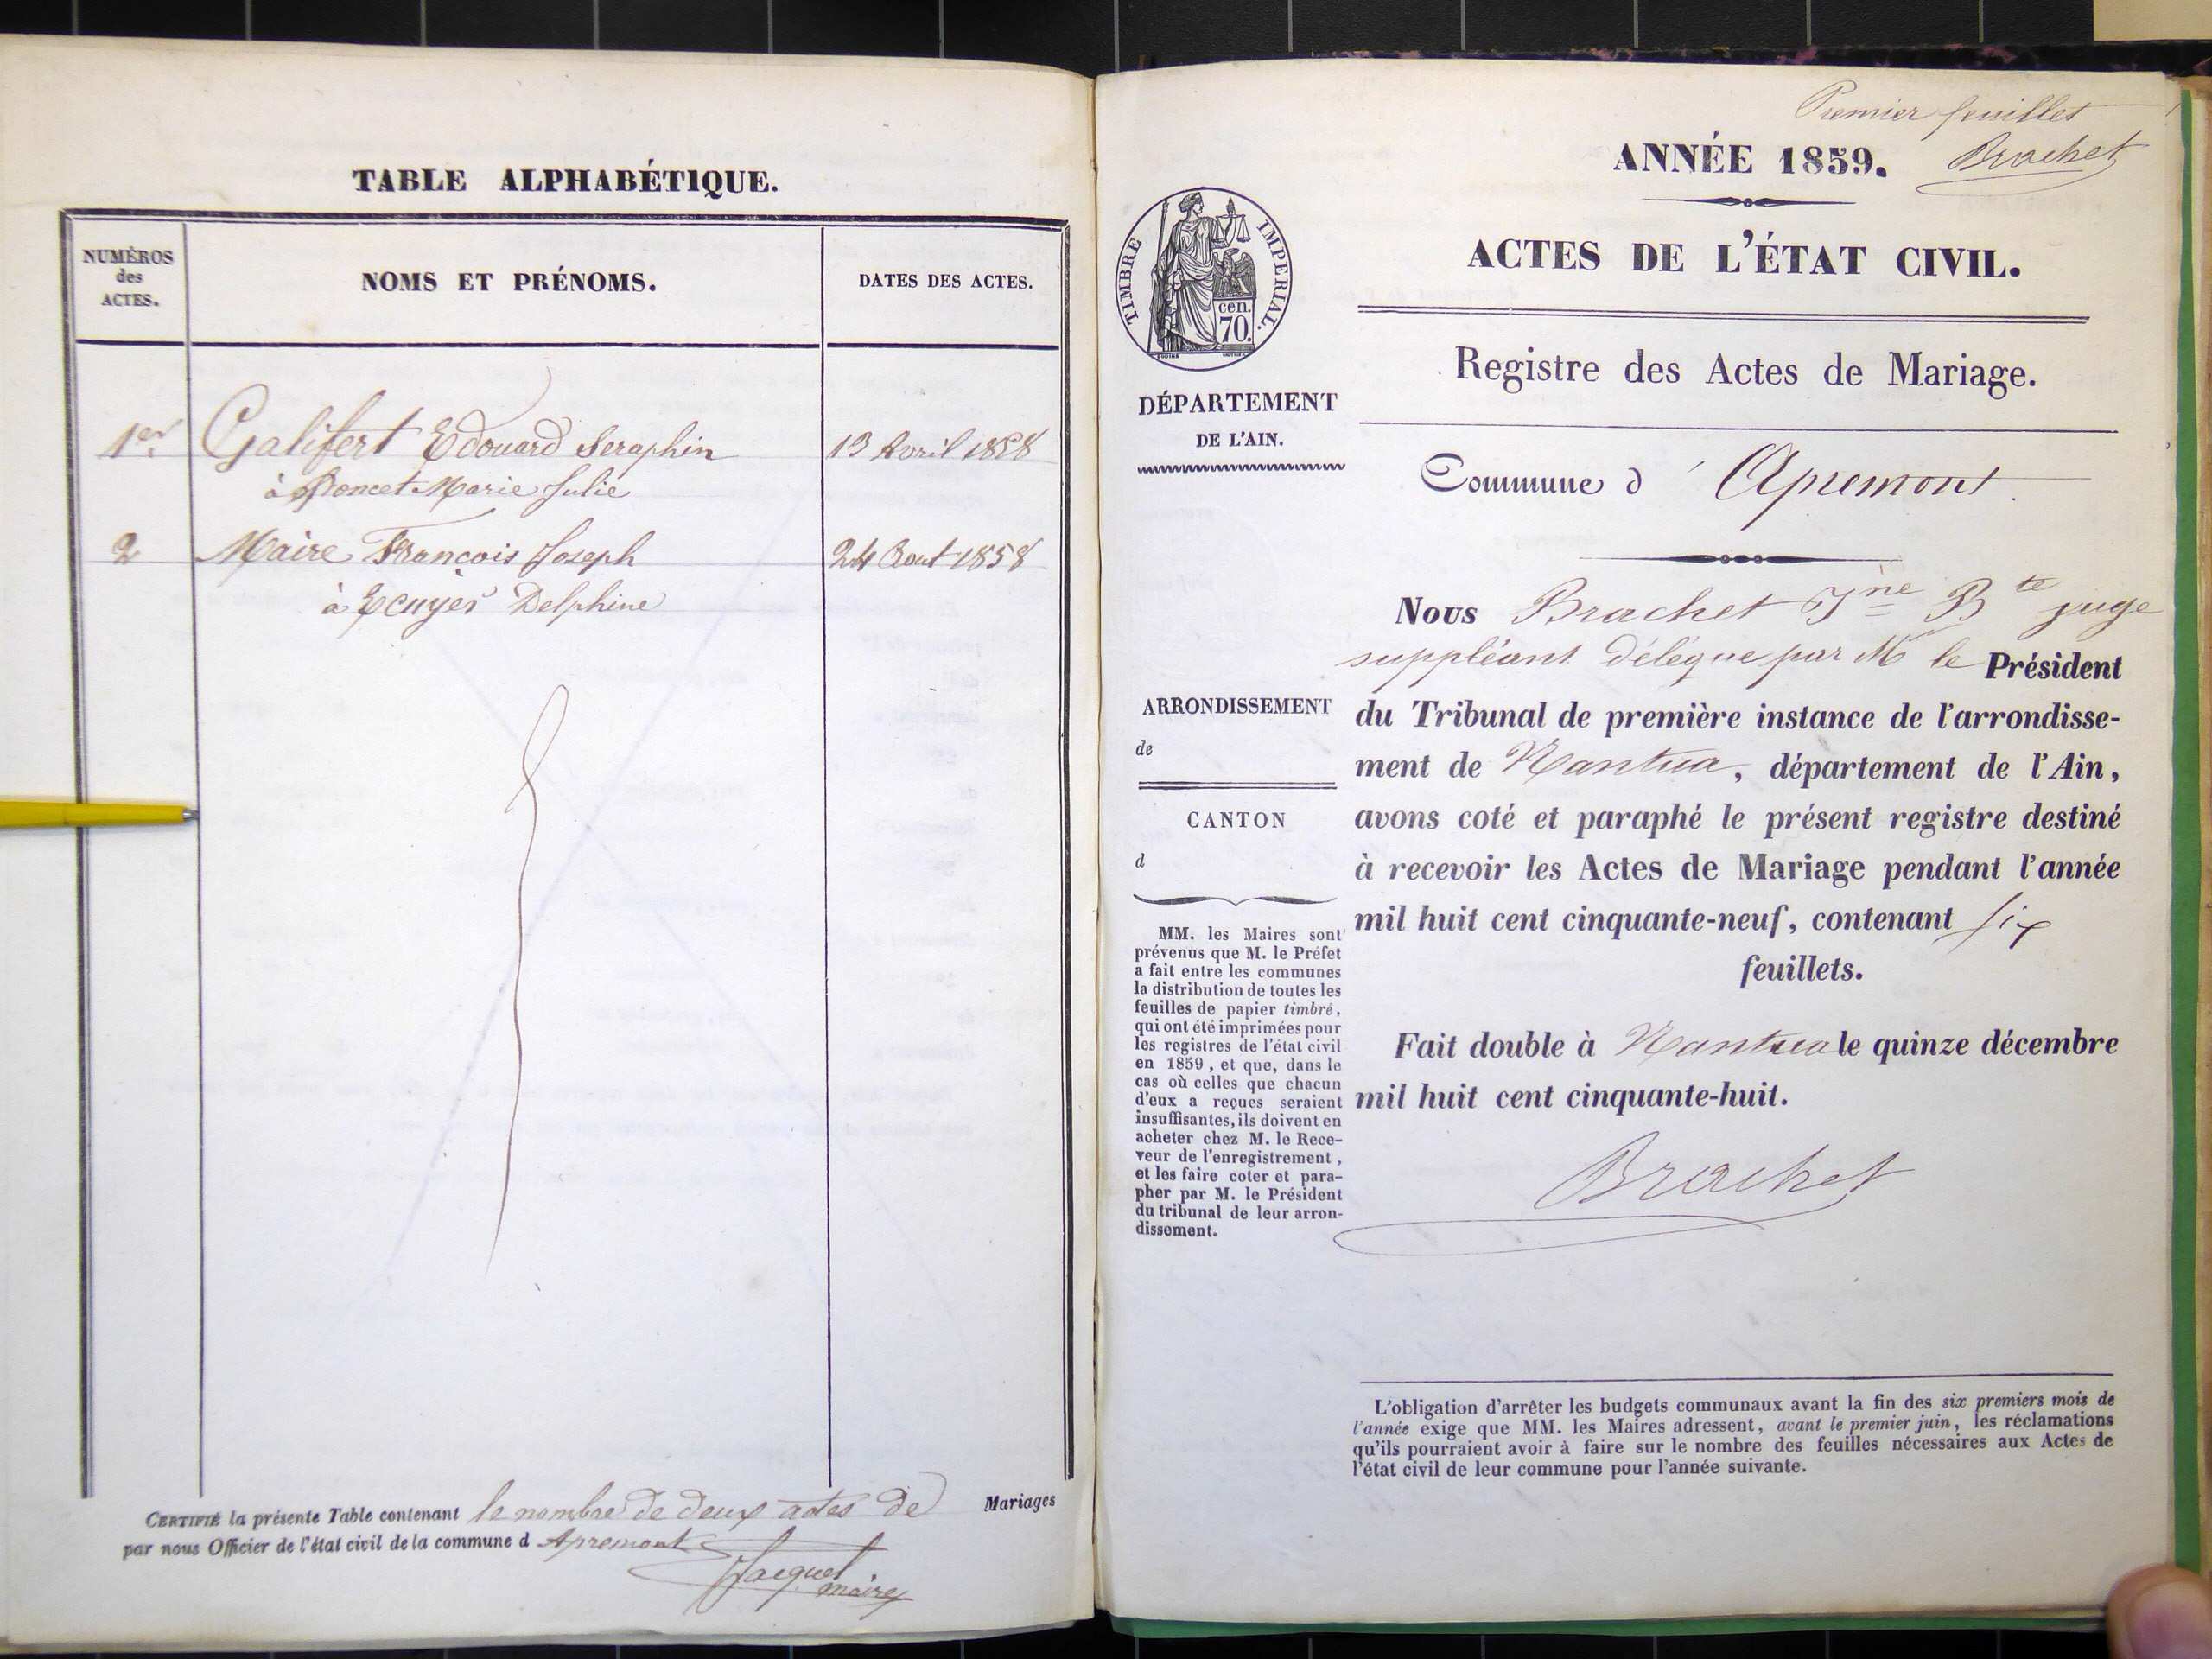 TABLE ALPHABÉTIQUE.
NUMÉROS
des
ACTES.
NOMS ET PRÉNOMS.
DATES DES ACTES.
1er Galifert Edouard Seraphin 13 Avril 1858
à Poncet Marie Julie
2 Maire François Joseph 24 Aout 1858
à Ecuyer Delphine
CERTIFIÉ la présente Table contenant le nombre de deux actes de Mariages
par nous Officier de l'état civil de la commune d Apremont
Jacquet
maire
Premier feuillet
Brachet
ANNÉE 1859.
ACTES DE L'ÉTAT CIVIL.
TIMBRE IMPERIAL.
cen.
70.
Registre des Actes de Mariage.
DÉPARTEMENT
DE L'AIN.
Commune d' Apremont.
Nous Brachet Jne Bte juge
suppléant délégué par Mr le Président
ARRONDISSEMENT
de
du Tribunal de première instance de l'arrondisse-
ment de Nantua, département de l'Ain,
avons coté et paraphé le présent registre destiné
à recevoir les Actes de Mariage pendant l'année
mil huit cent cinquante-neuf, contenant six
feuillets.
Fait double à Nantua le quinze décembre
mil huit cent cinquante-huit.
Brachet
CANTON
d
MM. les Maires sont
prévenus que M. le Préfet
a fait entre les communes
la distribution de toutes les
feuilles de papier timbré,
qui ont été imprimées pour
les registres de l'état civil
en 1859, et que, dans le
cas où celles que chacun
d'eux a reçues seraient
insuffisantes, ils doivent en
acheter chez M. le Rece-
veur de l'enregistrement,
et les faire coter et para-
pher par M. le Président
du tribunal de leur arron-
dissement.
L'obligation d'arrêter les budgets communaux avant la fin des six premiers mois de
l'année exige que MM. les Maires adressent, avant le premier juin, les réclamations
qu'ils pourraient avoir à faire sur le nombre des feuilles nécessaires aux Actes de
l'état civil de leur commune pour l'année suivante.